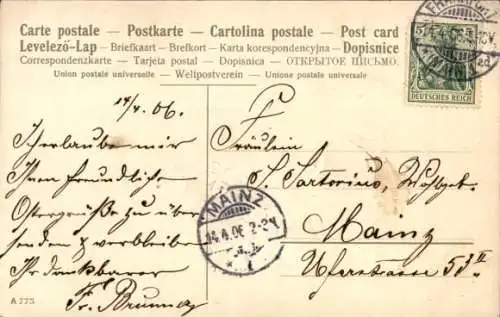 Carte postale – Postkarte – Cartolina postale – Post card
Levelező-Lap – Briefkaart – Brefkort – Karta korespondencyjna – Dopisnice
Correspondenzkarte – Tarjeta postal – Dopisnica – ОТКРЫТОЕ ПИСЬМО.
Union postale universelle – Weltpostverein – Unione postale universale
DEUTSCHES REICH
14/4. 06.
Ich erlaube mir
Ihnen freundliche
Ostergrüße zu über
senden & verbleibe
Ihr dankbarer
Fr.
Fräulein
S. Sartorius, Wohlgeb.
Mainz
Uferstrasse 53 II
MAINZ
14.4.06. 2-3 N
* 1
A 775